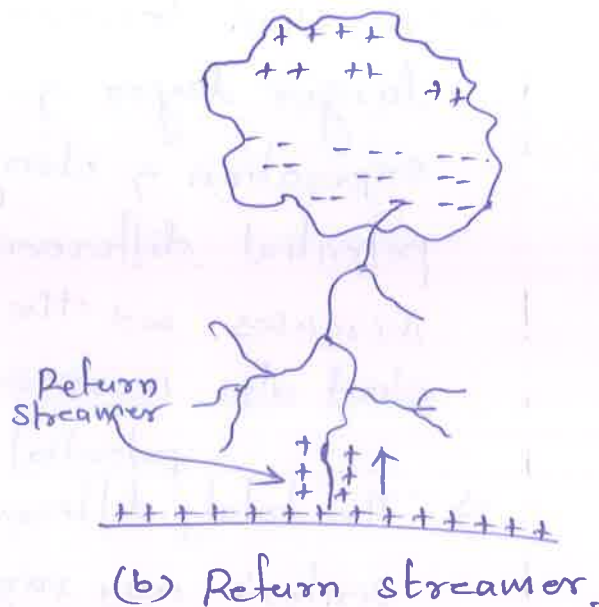 + + + +
+ + + +
+ +
- - - - - - -
- - - - - -
- - - - - -
Return
streamer
+ +
+ +
+ +
+ + + + + + + + + + + + + +
(b) Return streamer.